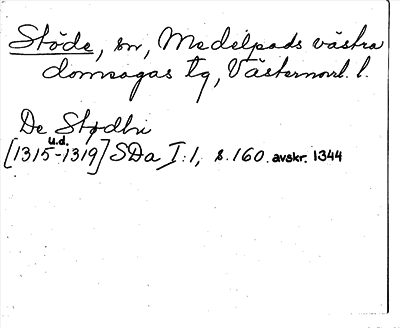 Stöde, sn, Medelpads västra
domsagas tg, Västernorrl. l.
De Stødhi
u.d.
[1315-1319] SDa I:1, s. 160. avskr. 1344